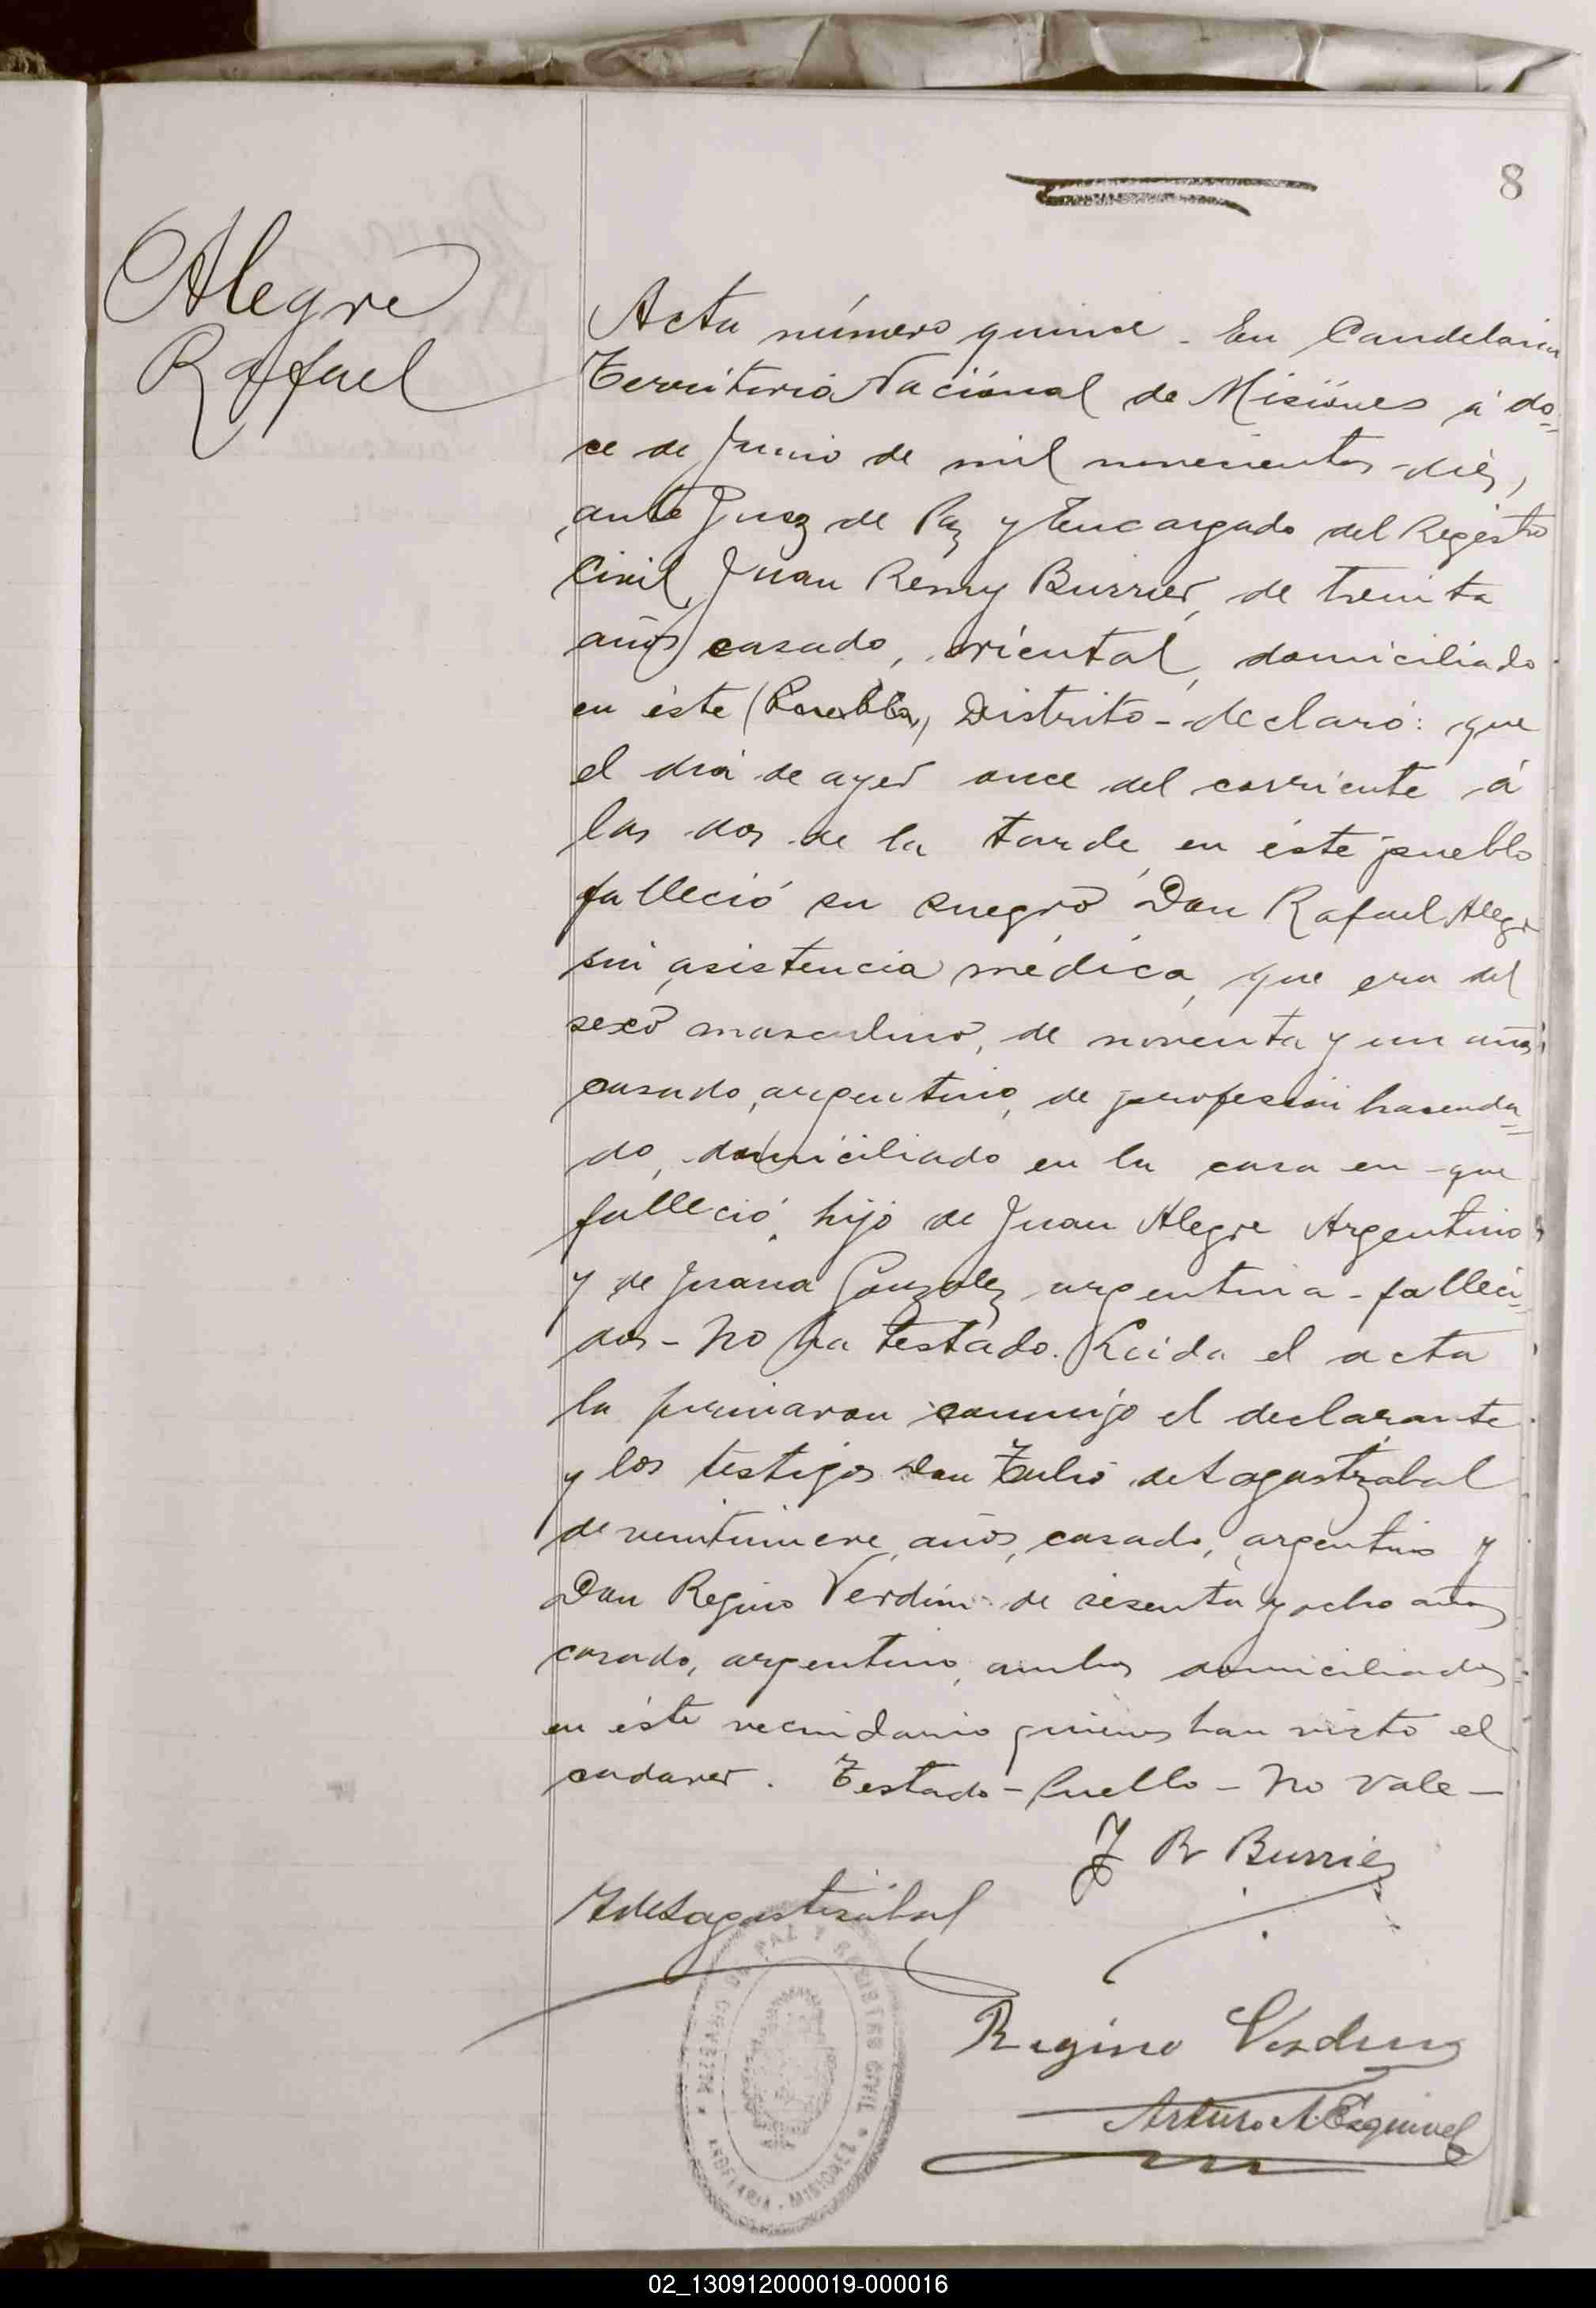 8
Alegre
Rafael
Acta número quince - En Candelaria
Territorio Nacional de Misiones á do=
ce de Junio de mil novecientos diéz,
ante Juez de Paz y Encargado del Registro
Civil, Juan Remy Burrier, de treinta
años casado, oriental, domiciliado
en éste (Pueblo,) Distrito - declaró: que
el dia de ayer once del corriente á
las dos de la tarde, en éste pueblo
falleció su suegro Don Rafael Alegre
sin asistencia médica, que era del
sexo masculino, de noventa y un años
casado, argentino, de profesión hacenda=
do, domiciliado en la casa en que
falleció, hijo de Juan Alegre Argentino
y de Juana Gonzalez argentina - falleci=
dos - No ha testado. Leida el acta
la firmaron conmigo el declarante
y los testigos Don Tulio de Lagastizabal
de veintinueve años, casado, argentino y
Don Regino Verdún de sesenta y ocho años
casado, argentino, ambos domiciliados
en éste vecindario quienes han visto el
cadaver. Testado - Puello - No vale -
J R Burrier
T de Lagastizábal
Regino Verdun
Arturo A. Esquivel
JUZGADO DE PAZ Y REGISTRO CIVIL
CANDELARIA - MISIONES
02_130912000019-000016